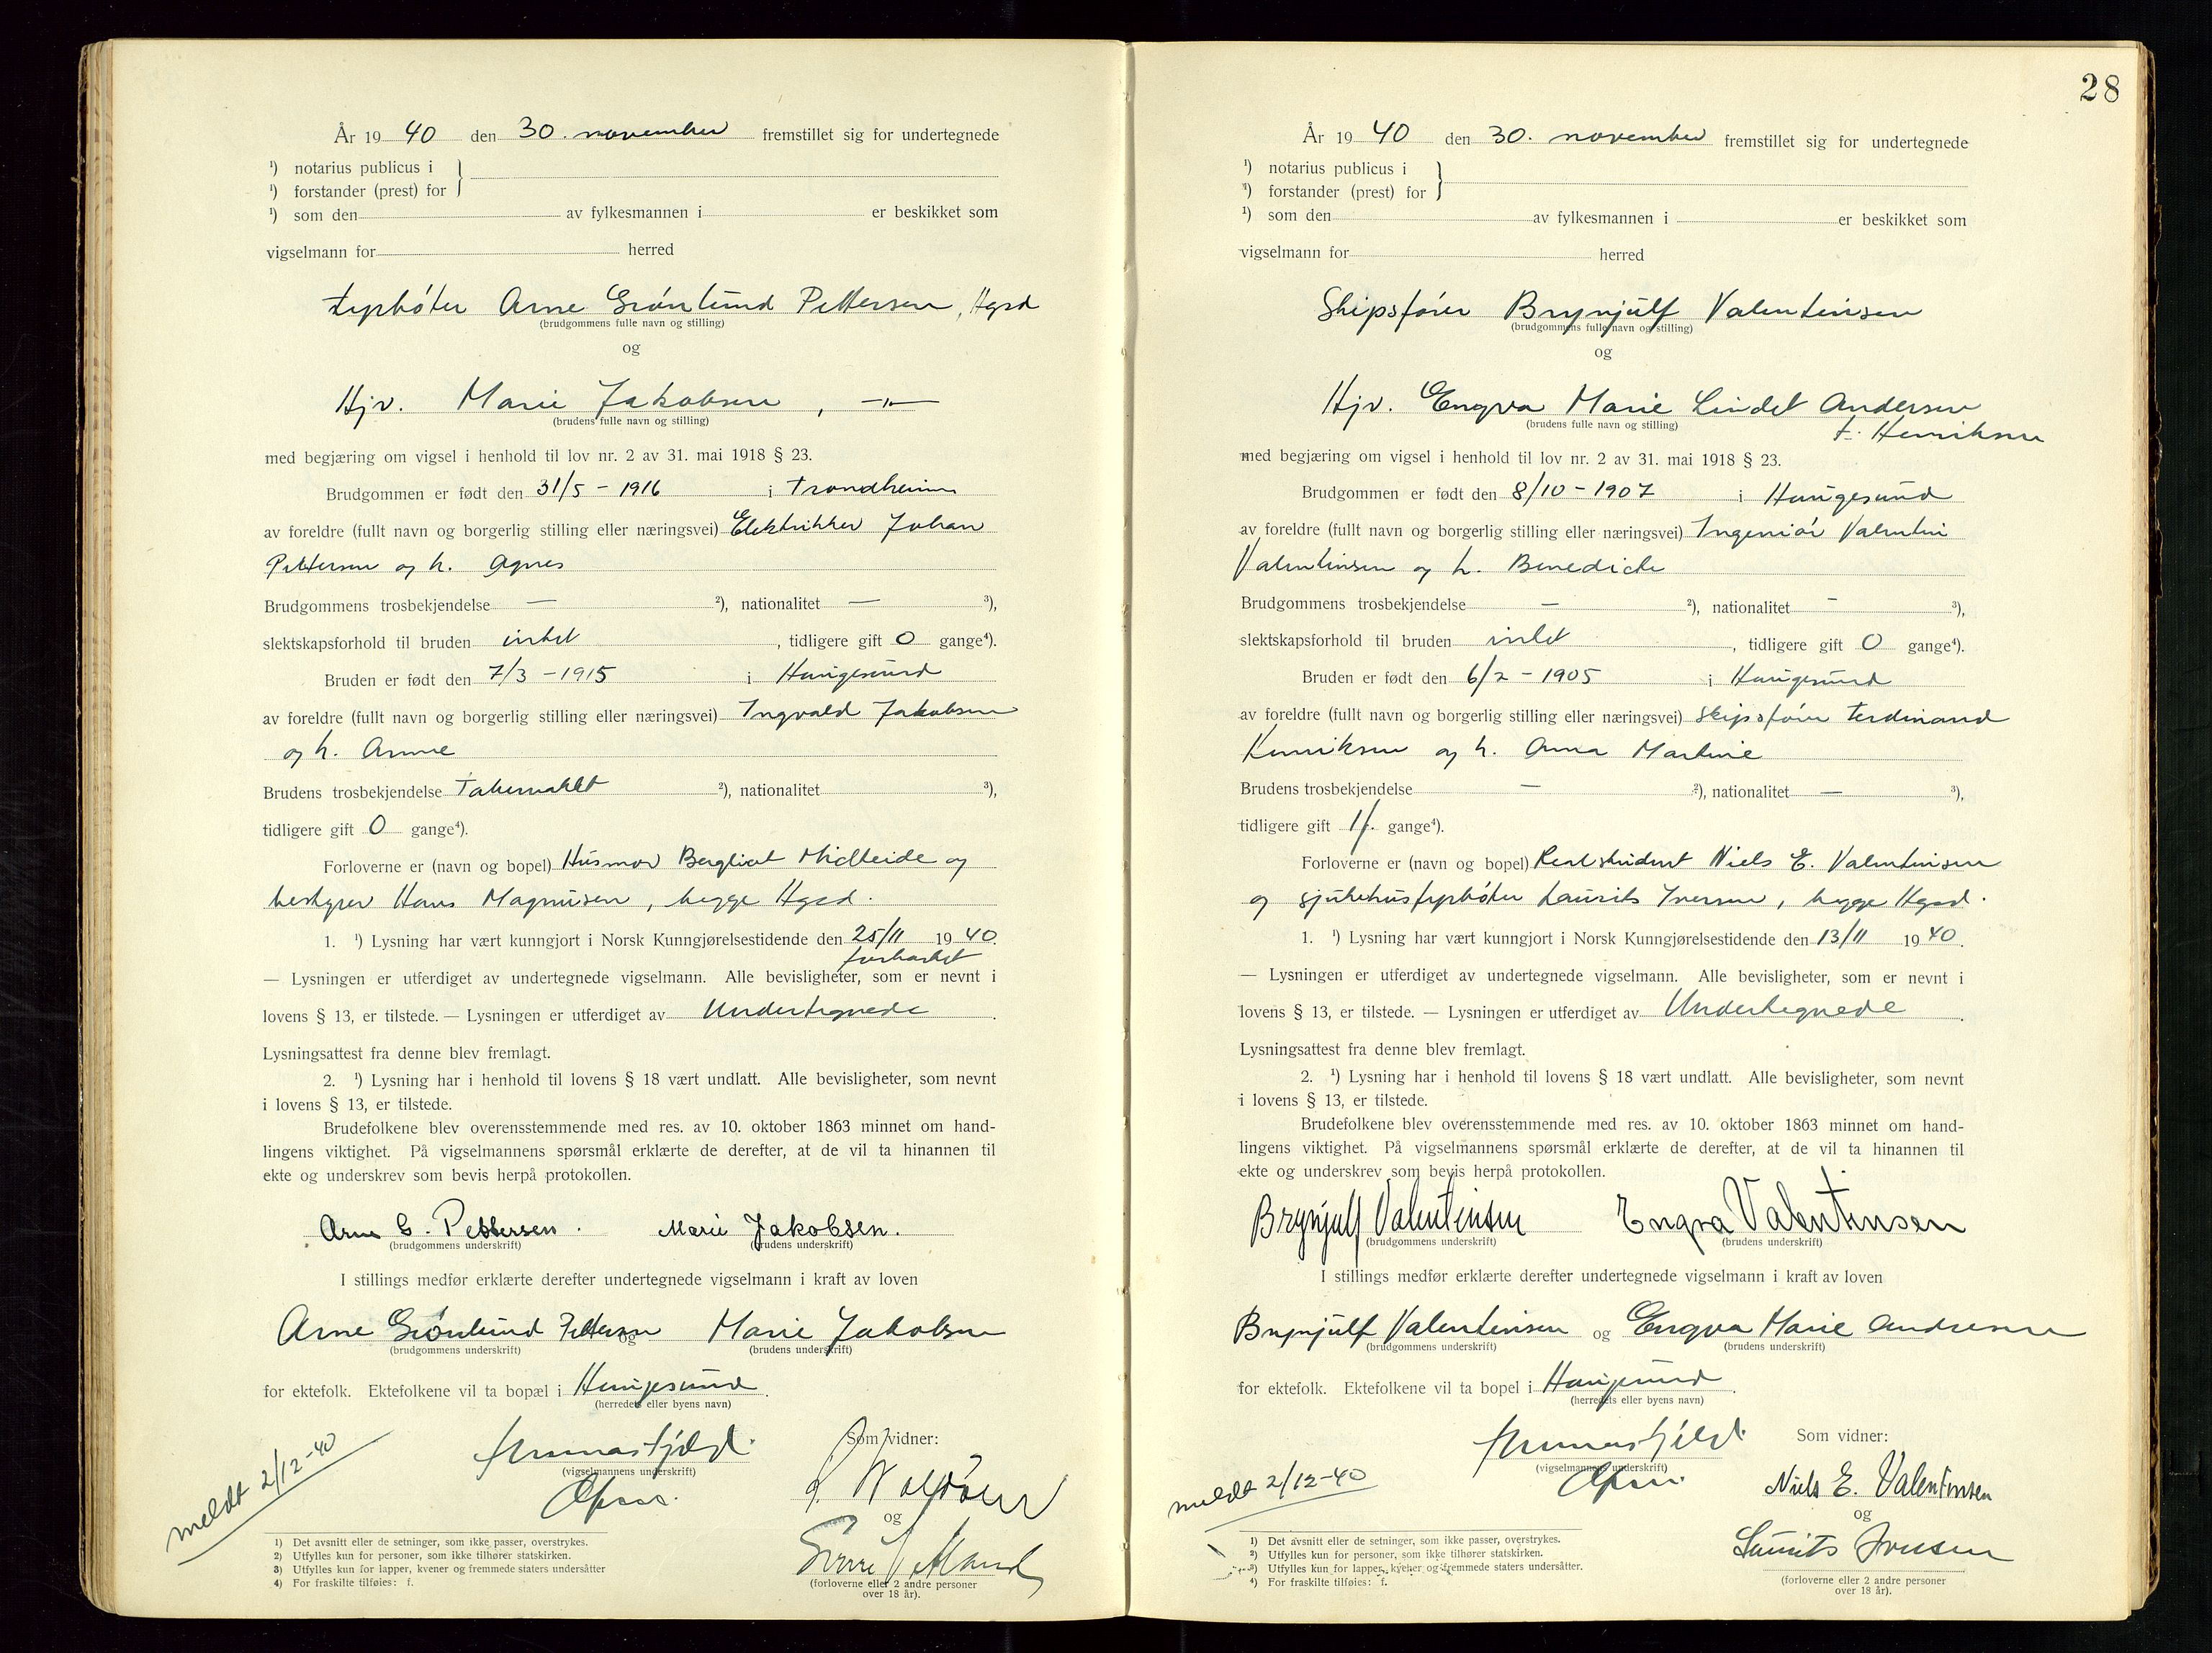 År 1940 den 30. november fremstillet sig for undertegnede
¹) notarius publicus i
¹) forstander (prest) for
¹) som den av fylkesmannen i er beskikket som
vigselmann for herred
fyrbøter Arne Grønlund Pettersen, Hgsd
(brudgommens fulle navn og stilling)
og
Hjv. Marie Jakobsen, —"—
(brudens fulle navn og stilling)
med begjæring om vigsel i henhold til lov nr. 2 av 31. mai 1918 § 23.
Brudgommen er født den 31/5 - 1916 i Trondheim
av foreldre (fullt navn og borgerlig stilling eller næringsvei) Elektrikker Johan
Pettersen og h. Agnes
Brudgommens trosbekjendelse — ²), nationalitet — ³),
slektskapsforhold til bruden intet, tidligere gift 0 gange⁴).
Bruden er født den 7/3 - 1915 i Haugesund
av foreldre (fullt navn og borgerlig stilling eller næringsvei) Ingvald Jakobsen
og h. Anne
Brudens trosbekjendelse Tabernaklet ²), nationalitet ³),
tidligere gift 0 gange⁴).
Forloverne er (navn og bopel) Husmor Bergliot Midteide og
bestyrer Hans Magnusen, begge Hgsd.
1. ¹) Lysning har vært kunngjort i Norsk Kunngjørelsestidende den 25/11 1940.
forkortet
— Lysningen er utferdiget av undertegnede vigselmann. Alle bevisligheter, som er nevnt i
lovens § 13, er tilstede. — Lysningen er utferdiget av Undertegnede.
Lysningsattest fra denne blev fremlagt.
2. ¹) Lysning har i henhold til lovens § 18 vært undlatt. Alle bevisligheter, som nevnt
i lovens § 13, er tilstede.
Brudefolkene blev overensstemmende med res. av 10. oktober 1863 minnet om hand-
lingens viktighet. På vigselmannens spørsmål erklærte de derefter, at de vil ta hinannen til
ekte og underskrev som bevis herpå protokollen.
Arne G. Pettersen. Marie Jakobsen.
(brudgommens underskrift) (brudens underskrift)
I stillings medfør erklærte derefter undertegnede vigselmann i kraft av loven
Arne Grønlund Pettersen og Marie Jakobsen
(brudgommens underskrift) (brudens underskrift)
for ektefolk. Ektefolkene vil ta bopæl i Haugesund.
(herredets eller byens navn)
Som vidner:
(vigselmannens underskrift)
og
meldt 2/12-40
(forloverne eller 2 andre personer
over 18 år).
1) Det avsnitt eller de setninger, som ikke passer, overstrykes.
2) Utfylles kun for personer, som ikke tilhører statskirken.
3) Utfylles kun for lapper, kvener og fremmede staters undersåtter
4) For fraskilte tilføies: f.
28
År 1940 den 30. november fremstillet sig for undertegnede
¹) notarius publicus i
¹) forstander (prest) for
¹) som den av fylkesmannen i er beskikket som
vigselmann for herred
Skipsfører Brynjulf Valentinsen
(brudgommens fulle navn og stilling)
og
Hjv. Engva Marie Lindet Andersen
f. Henriksen
(brudens fulle navn og stilling)
med begjæring om vigsel i henhold til lov nr. 2 av 31. mai 1918 § 23.
Brudgommen er født den 8/10 - 1907 i Haugesund
av foreldre (fullt navn og borgerlig stilling eller næringsvei) Ingeniør Valentin
Valentinsen og h. Benedicte
Brudgommens trosbekjendelse — ²), nationalitet - ³),
slektskapsforhold til bruden intet, tidligere gift 0 gange⁴).
Bruden er født den 6/2 - 1905 i Haugesund
av foreldre (fullt navn og borgerlig stilling eller næringsvei) skipsfører Ferdinand
Henriksen og h. Anna Martine
Brudens trosbekjendelse — ²), nationalitet — ³),
tidligere gift 1 f. gange⁴).
Forloverne er (navn og bopel) Realstudent Niels E. Valentinsen
og sjukehusfyrbøter Laurits Iversen, begge Hgsd.
1. ¹) Lysning har vært kunngjort i Norsk Kunngjørelsestidende den 13/11 1940.
— Lysningen er utferdiget av undertegnede vigselmann. Alle bevisligheter, som er nevnt i
lovens § 13, er tilstede. — Lysningen er utferdiget av Undertegnede.
Lysningsattest fra denne blev fremlagt.
2. ¹) Lysning har i henhold til lovens § 18 vært undlatt. Alle bevisligheter, som nevnt
i lovens § 13, er tilstede.
Brudefolkene blev overensstemmende med res. av 10. oktober 1863 minnet om hand-
lingens viktighet. På vigselmannens spørsmål erklærte de derefter, at de vil ta hinannen til
ekte og underskrev som bevis herpå protokollen.
Brynjulf Valentinsen Engva Valentinsen
(brudgommens underskrift) (brudens underskrift)
I stillings medfør erklærte derefter undertegnede vigselmann i kraft av loven
Brynjulf Valentinsen og Engva Marie Andersen
(brudgommens underskrift) (brudens underskrift)
for ektefolk. Ektefolkene vil ta bopel i Haugesund.
(herredets eller byens navn)
Som vidner:
(vigselmannens underskrift)
meldt 2/12-40
Niels E. Valentinsen
og
Laurits Iversen
(forloverne eller 2 andre personer
over 18 år).
1) Det avsnitt eller de setninger, som ikke passer, overstrykes.
2) Utfylles kun for personer, som ikke tilhører statskirken.
3) Utfylles kun for lapper, kvener og fremmede staters undersåtter.
4) For fraskilte tilføies: f.